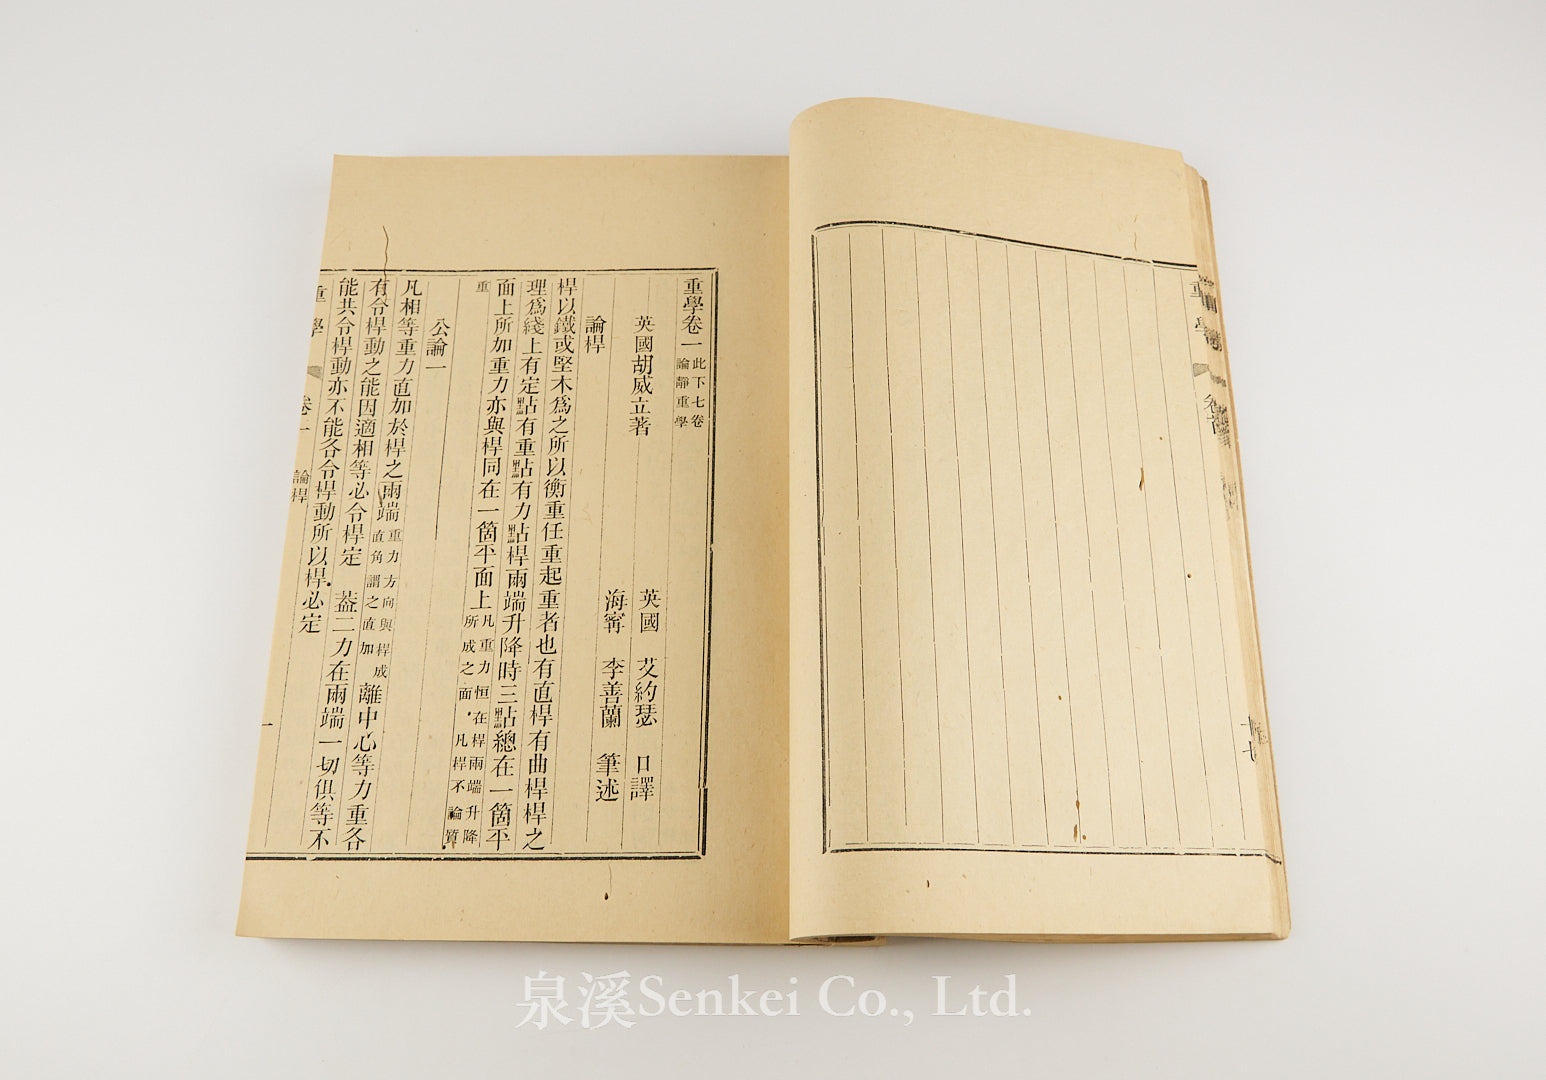 重學 卷首
重學卷一 此下七卷論靜重學
英國胡威立著
英國 艾約瑟 口譯
海寧 李善蘭 筆述
論桿
桿以鐵或堅木爲之所以衡重任重起重者也有直桿有曲桿桿之
理爲綫上有定點有重點有力點桿兩端升降時三點總在一箇平
面上所加重力亦與桿同在一箇平面上凡重力恒在桿兩端升降所成之面凡桿不論質
重
公論一
凡相等重力直加於桿之兩端重力方向與桿成直角謂之直加離中心等力重各
有令桿動之能因適相等必令桿定 葢二力在兩端一切俱等不
能共令桿動亦不能各令桿動所以桿必定
重學 卷一 論桿 一
泉溪Senkei Co., Ltd.